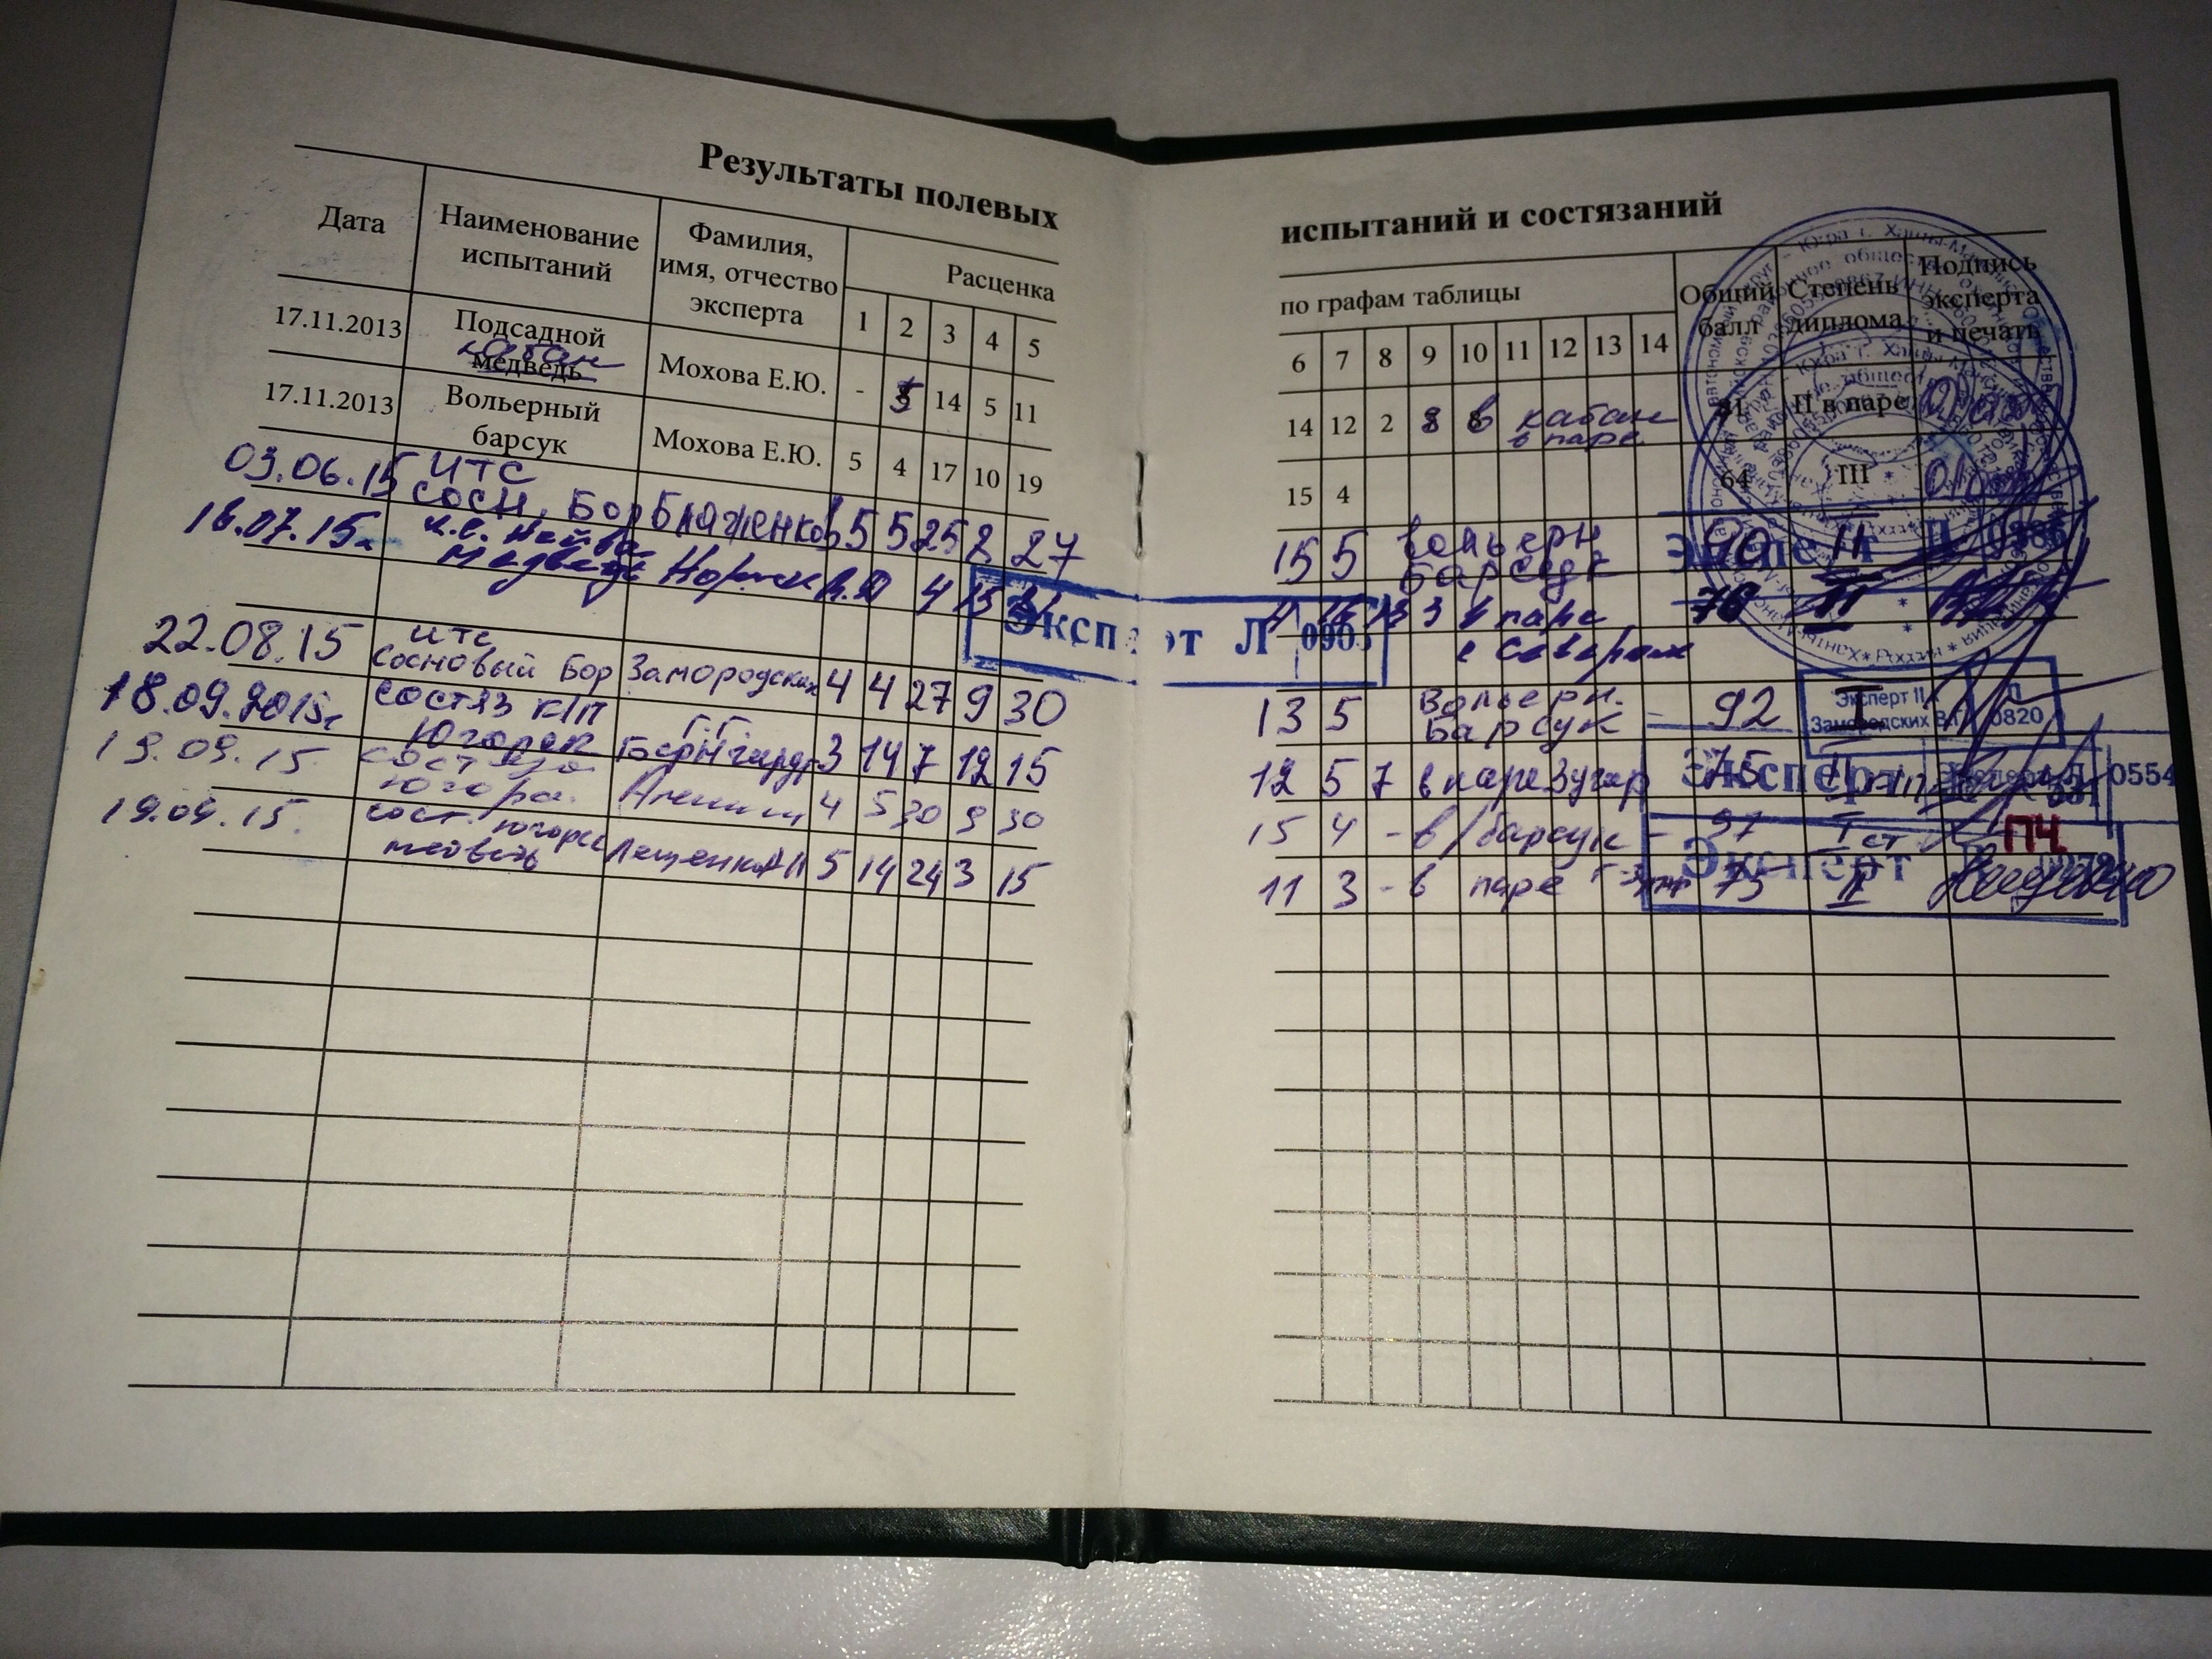 Результаты полевых
испытаний и состязаний
Дата
Наименование
испытаний
Фамилия,
имя, отчество
эксперта
Расценка
1 2 3 4 5
по графам таблицы
6 7 8 9 10 11 12 13 14
Общий
балл
Степень
диплома
Подпись
эксперта
и печать
17.11.2013
Подсадной
кабан
медведь
Мохова Е.Ю.
- 5 14 5 11
14 12 2 8 в кабан
в паре
II в паре
17.11.2013
Вольерный
барсук
Мохова Е.Ю.
5 4 17 10 19
15 4
64 III
03.06.15 ИТС
Сосн. Бор Блаженков
5 5 25 8 27
15 5 вольерн
Барсук
90 II
Эксперт Л
16.07.15г
4 15
3 в паре
с Севером
Эксперт Л
22.08.15 итс
Сосновый Бор Замородских
4 4 27 9 30
13 5 Вольерн.
Барсук - 92 I
Эксперт II к
Замородских В.Г.
Л
0820
18.09.2015г состяз к/п
Югорск
3 14 7 12 15
12 5 7 в паре Зугар 75
Эксперт
0554
19.09.15
4 5 30 9 30
15 4 - в/барсук - 97 I ст
ПЧ
19.09.15. сост. Югорск
медведь
Лещенко
5 14 24 3 15
11 3 - в паре 75 II
Эксперт